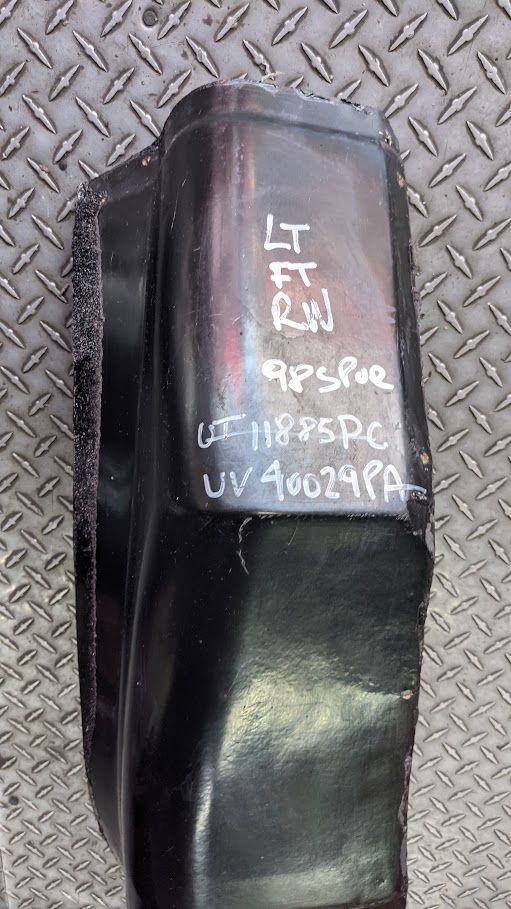 LT
FT
RW
98 SPOR
GT 11885PC
UV 40029PA